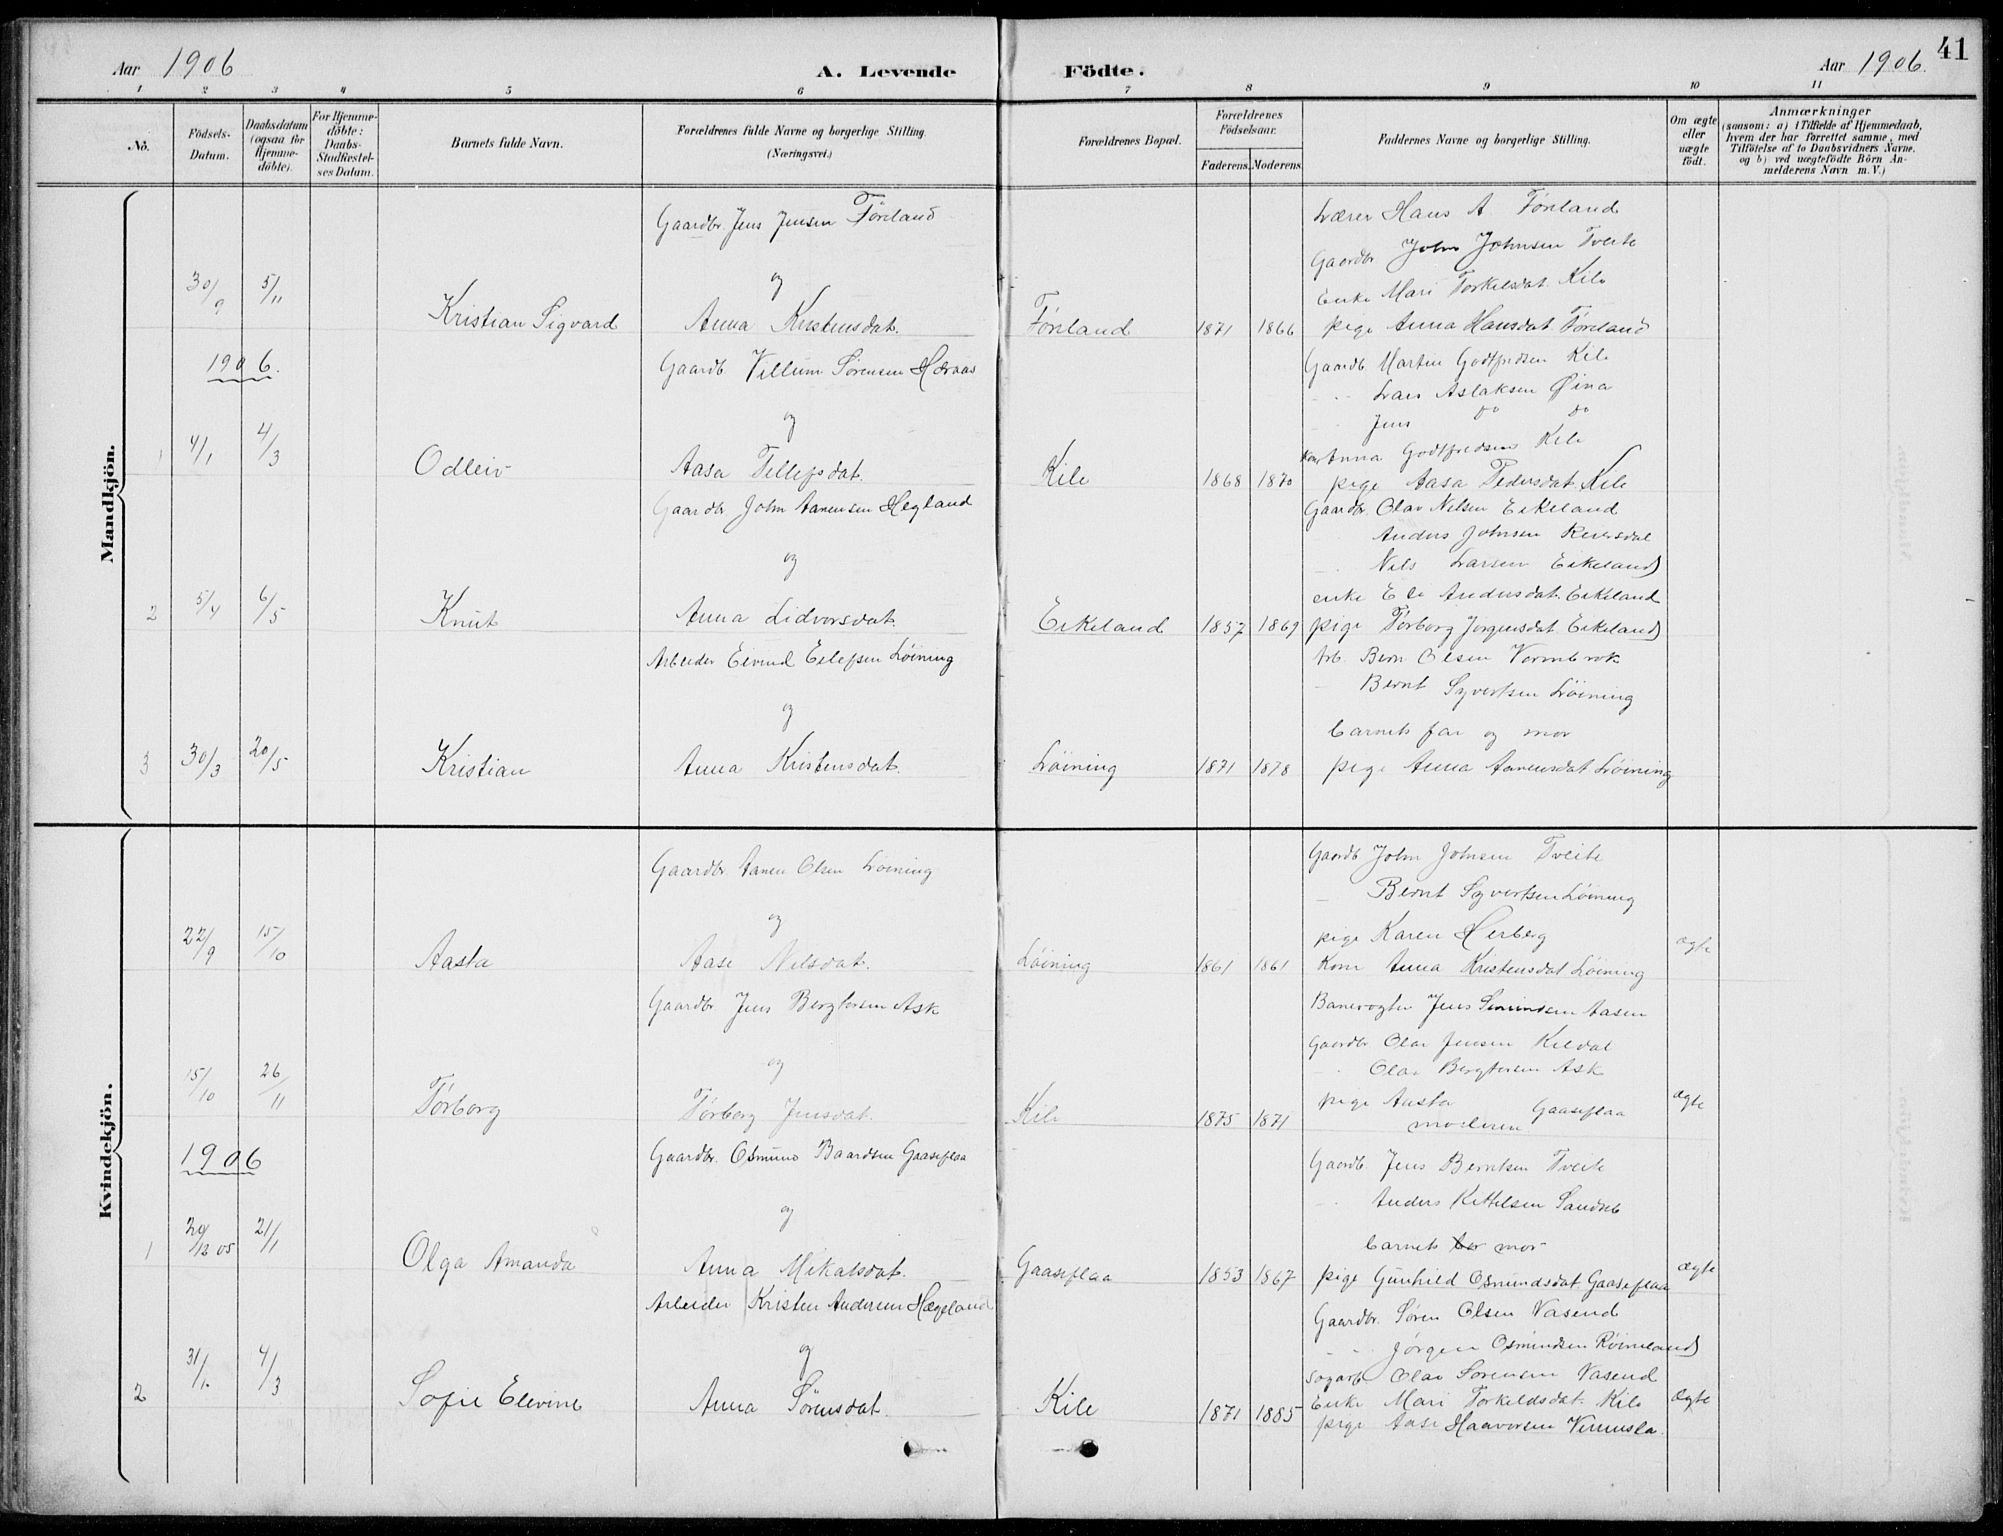 41
Aar 1906
A. Levende Födte.
Aar 1906.
1 2 3 4 5 6 7 8 9 10 11
No.
Födsels-Datum.
Daabsdatum (ogsaa for Hjemme-döbte).
For Hjemme-döbte: Daabs-Stadfæstel-ses Datum.
Barnets fulde Navn.
Forældrenes fulde Navne og borgerlige Stilling. (Næringsvei.)
Forældrenes Bopæl.
Forældrenes Födselsaar.
Faderens. Moderens.
Faddernes Navne og borgerlige Stilling.
Om ægte eller uægte født.
Anmærkninger
(saasom: a) i Tilfælde af Hjemmedaab, hvem der har forrettet samme, med Tilföielse af to Daabsvidners Navne, og b) ved uægtefödte Börn An-melderens Navn m. V.)
Mandkjön.
Gaardbr. Jens Jensen Föreland
og
30/9 5/11 Kristian Sigvard Anna Kristensdat. Föreland 1871 1866
Lærer Hans A Föreland
Gaardbr John Johnsen Tveite
Enke Mari Torkelsdat. Kile
pige Anna Hansdat Föreland
1906.
Gaardb. Villum Sörensen Heraas
og
1 4/1 4/3 Odleiv Aasa Tellefsdat. Kile 1868 1870
Gaardb. Marten Godtfredsen Kile
- - Lars Aslaksen Øina
Jens do do
Kone Anna Godtfredsen Kile
pige Aasa Pedersdat. Kile
Gaardbr John Aanensen Hegland
og
2 5/4 6/5 Knut Anna Lidvorsdat. Eikeland 1857 1869
Gaardbr. Olav Nilsen Eikeland
Anders Johnsen Reiersdal
- Nils Larsen Eikeland
enke Eli Andersdat. Eikeland
pige Törborg Jorgensdat. Eikeland
Arbeider Eivind Eilefsen Löining
og
3 30/3 20/5 Kristian Anna Kristensdat. Löining 1871 1878
Arb. Bern Olsen Vormbrok
- Bernt Syvertsen Löining
barnets far og mor
pige Anna Aanensdat Löining
Kvindekjön.
Gaardbr. Aanen Olsen Löining
og
22/9 15/10 Aasta Aase Nilsdat. Löining 1861 1861
Gaardb John Johnsen Tveite
- Bernt Syvertsen Löining
pige Karen Herberg
Kone Anna Kristensdat Löining
ægte
Gaardbr Jens Bergtorsen Ask
og
15/10 26/11 Törborg Törborg Jensdat. Kile 1875 1871
Banevogter Jens Simundsen Aasen
Gaardbr Olav Jensen Kildal
- Olav Bergtorsen Ask
pige Aasta Gaaseflaa
moderen
ægte
1906
Gaardbr. Osmund Baardsen Gaaseflaa
og
1 20/12 05 21/1 Olga Amanda Anna Mikalsdat. Gaaseflaa 1853 1867
Gaardb. Jens Berntsen Tveite
- Anders Kittelsen Sandnes
barnets mor
pige Gunhild Osmundsdat Gaaseflaa
ægte
Arbeider Kristen Andersen Hægeland
og
2 31/1. 4/3 Sofie Elevine Anna Sörensdat. Kile 1871 1885
Gaardbr. Sören Olsen Vasend
- - Jörgen Osmundsen Röineland
Sagarb Olav Sorensen Vasend
Enke Mari Torkeldsdat. Kile
pige Aase Haavorsen Vennesla.
Ægte